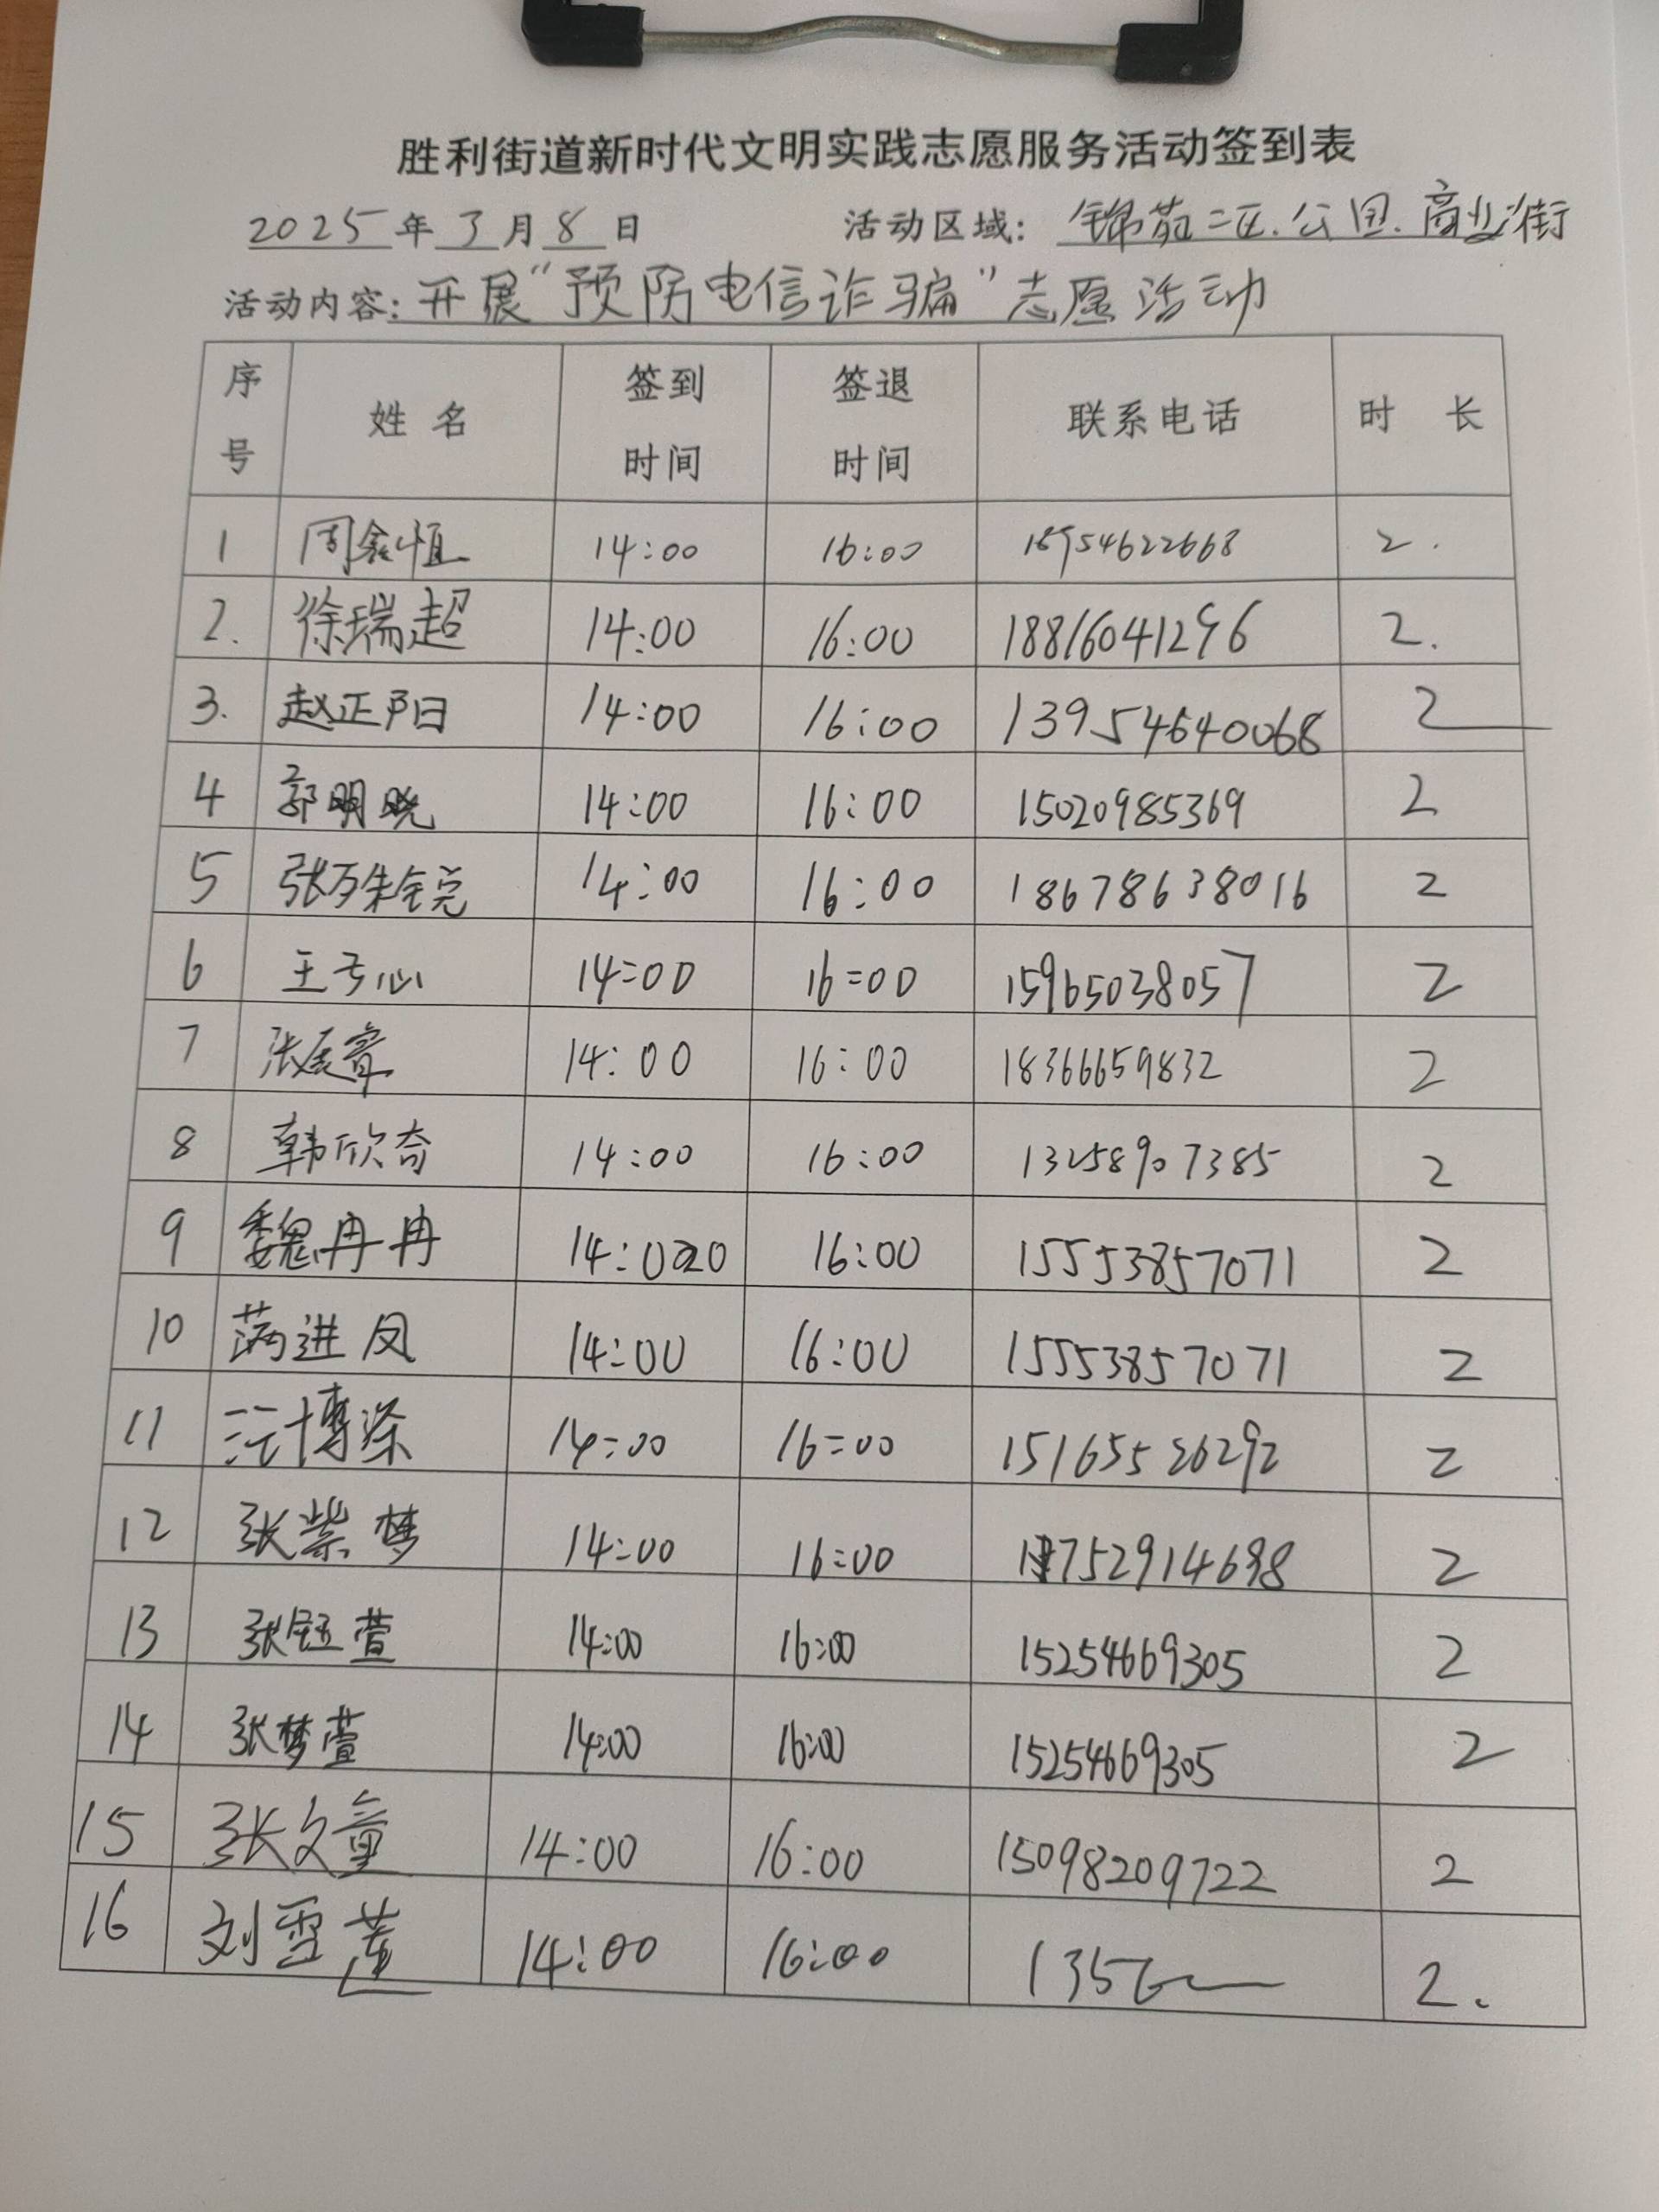 胜利街道新时代文明实践志愿服务活动签到表
2025年3月8日 活动区域：锦苑二区.公园.商业街
活动内容：开展“预防电信诈骗”志愿活动
序号 姓名 签到时间 签退时间 联系电话 时 长
1 周鑫恒 14:00 16:00 18954622668 2.
2. 徐瑞超 14:00 16:00 18816041296 2.
3. 赵正阳 14:00 16:00 13954640068 2
4 郭明晓 14:00 16:00 15020985369 2
5 张万铢锐 14:00 16:00 18678638016 2
6 王子心 14:00 16:00 15965038057 2
7 张宸睿 14:00 16:00 18366659832 2
8 韩欣奇 14:00 16:00 13258907385 2
9 魏冉冉 14:00 16:00 15553857071 2
10 满进凤 14:00 16:00 15553857071 2
11 博涤 14:00 16:00 15165526292 2
12 张紫梦 14:00 16:00 1752914698 2
13 张钰萱 14:00 16:00 15254669305 2
14 张梦萱 14:00 16:00 15254669305 2
15 张文童 14:00 16:00 15098209722 2
16 刘雪莲 14:00 16:00 1356 2.